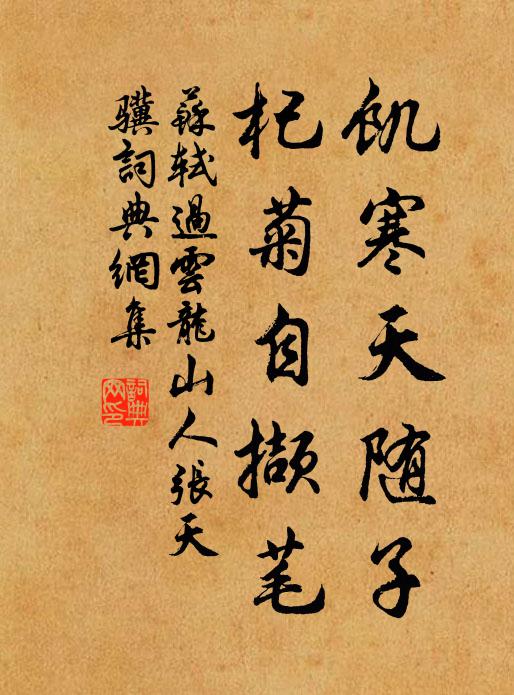 飢寒天随子
杞菊自擷芼
蘇軾過雲龍山人張天
驥詞典網集
詞典網印